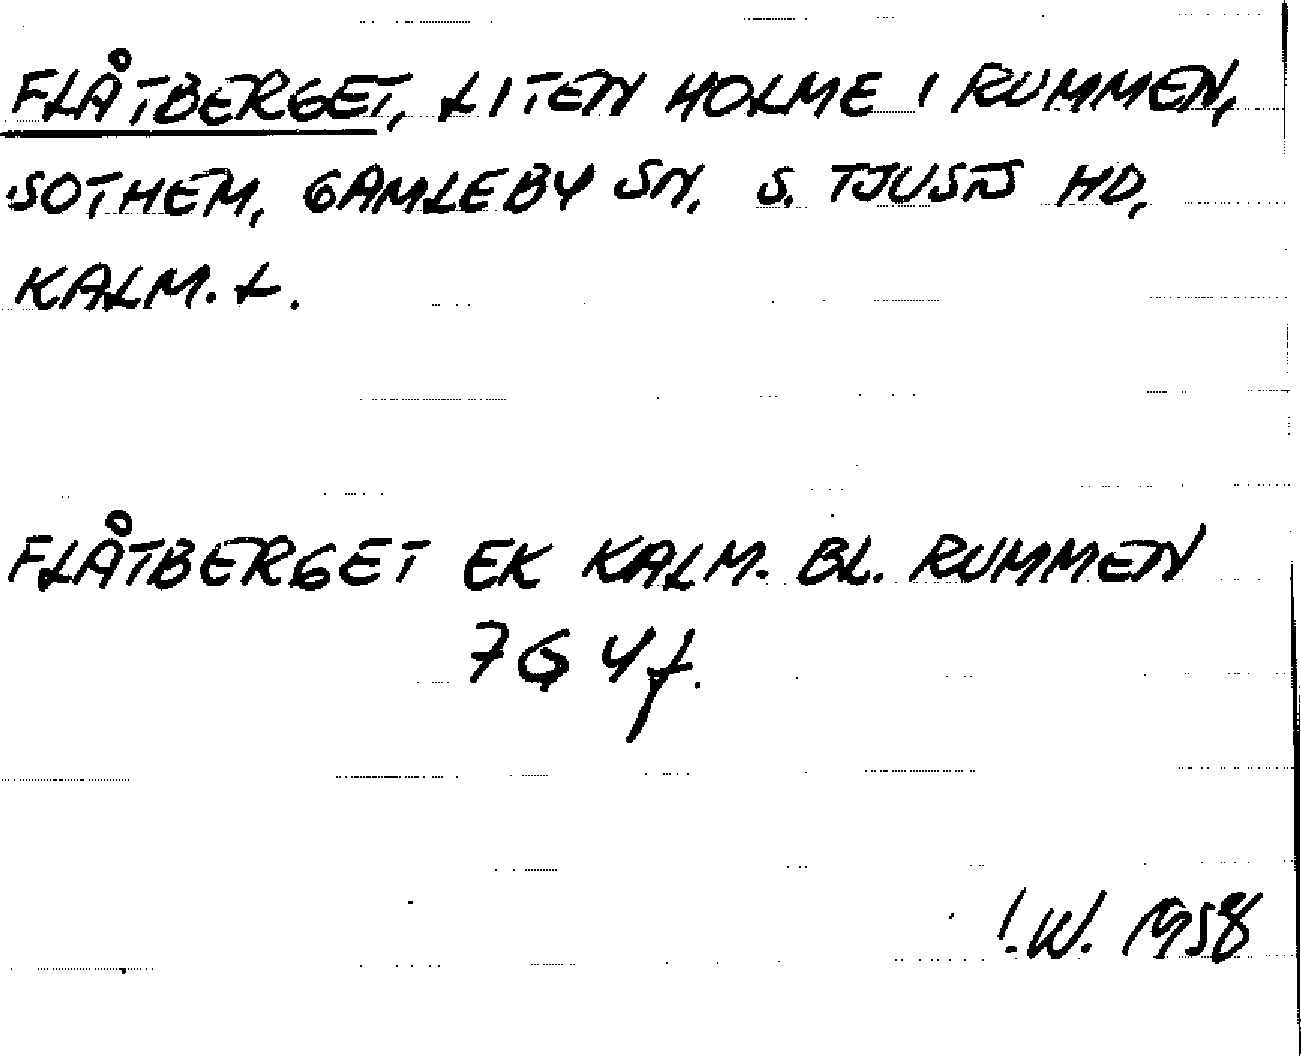 FLÅTBERGET, LITEN HOLME I RUMMEN,
SOTHEM, GAMLEBY SN. S. TJUSTS HD,
KALM. L.
FLÅTBERGET EK KALM. BL. RUMMEN
7G 4f.
!.W. 1958